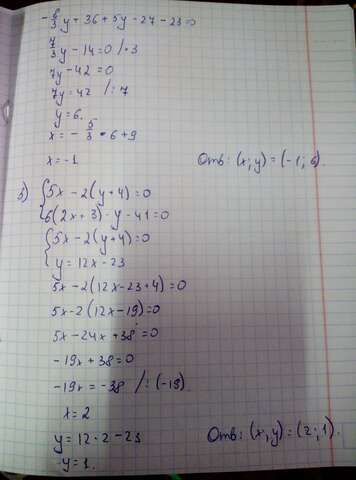 -8/3y + 36 + 5y - 27 - 23 = 0
7/3y - 14 = 0 / · 3
7y - 42 = 0
7y = 42 / : 7
y = 6.
x = - 5/3 · 6 + 9
x = -1 Ответ: (x; y) = (-1; 6).
3) { 5x - 2(y+4) = 0
6(2x + 3) - y - 41 = 0
{ 5x - 2(y+4) = 0
y = 12x - 23
5x - 2(12x - 23 + 4) = 0
5x - 2(12x - 19) = 0
5x - 24x + 38 = 0
-19x + 38 = 0
-19x = -38 / : (-19)
x = 2
y = 12 · 2 - 23 Ответ: (x, y) = (2; 1).
y = 1.